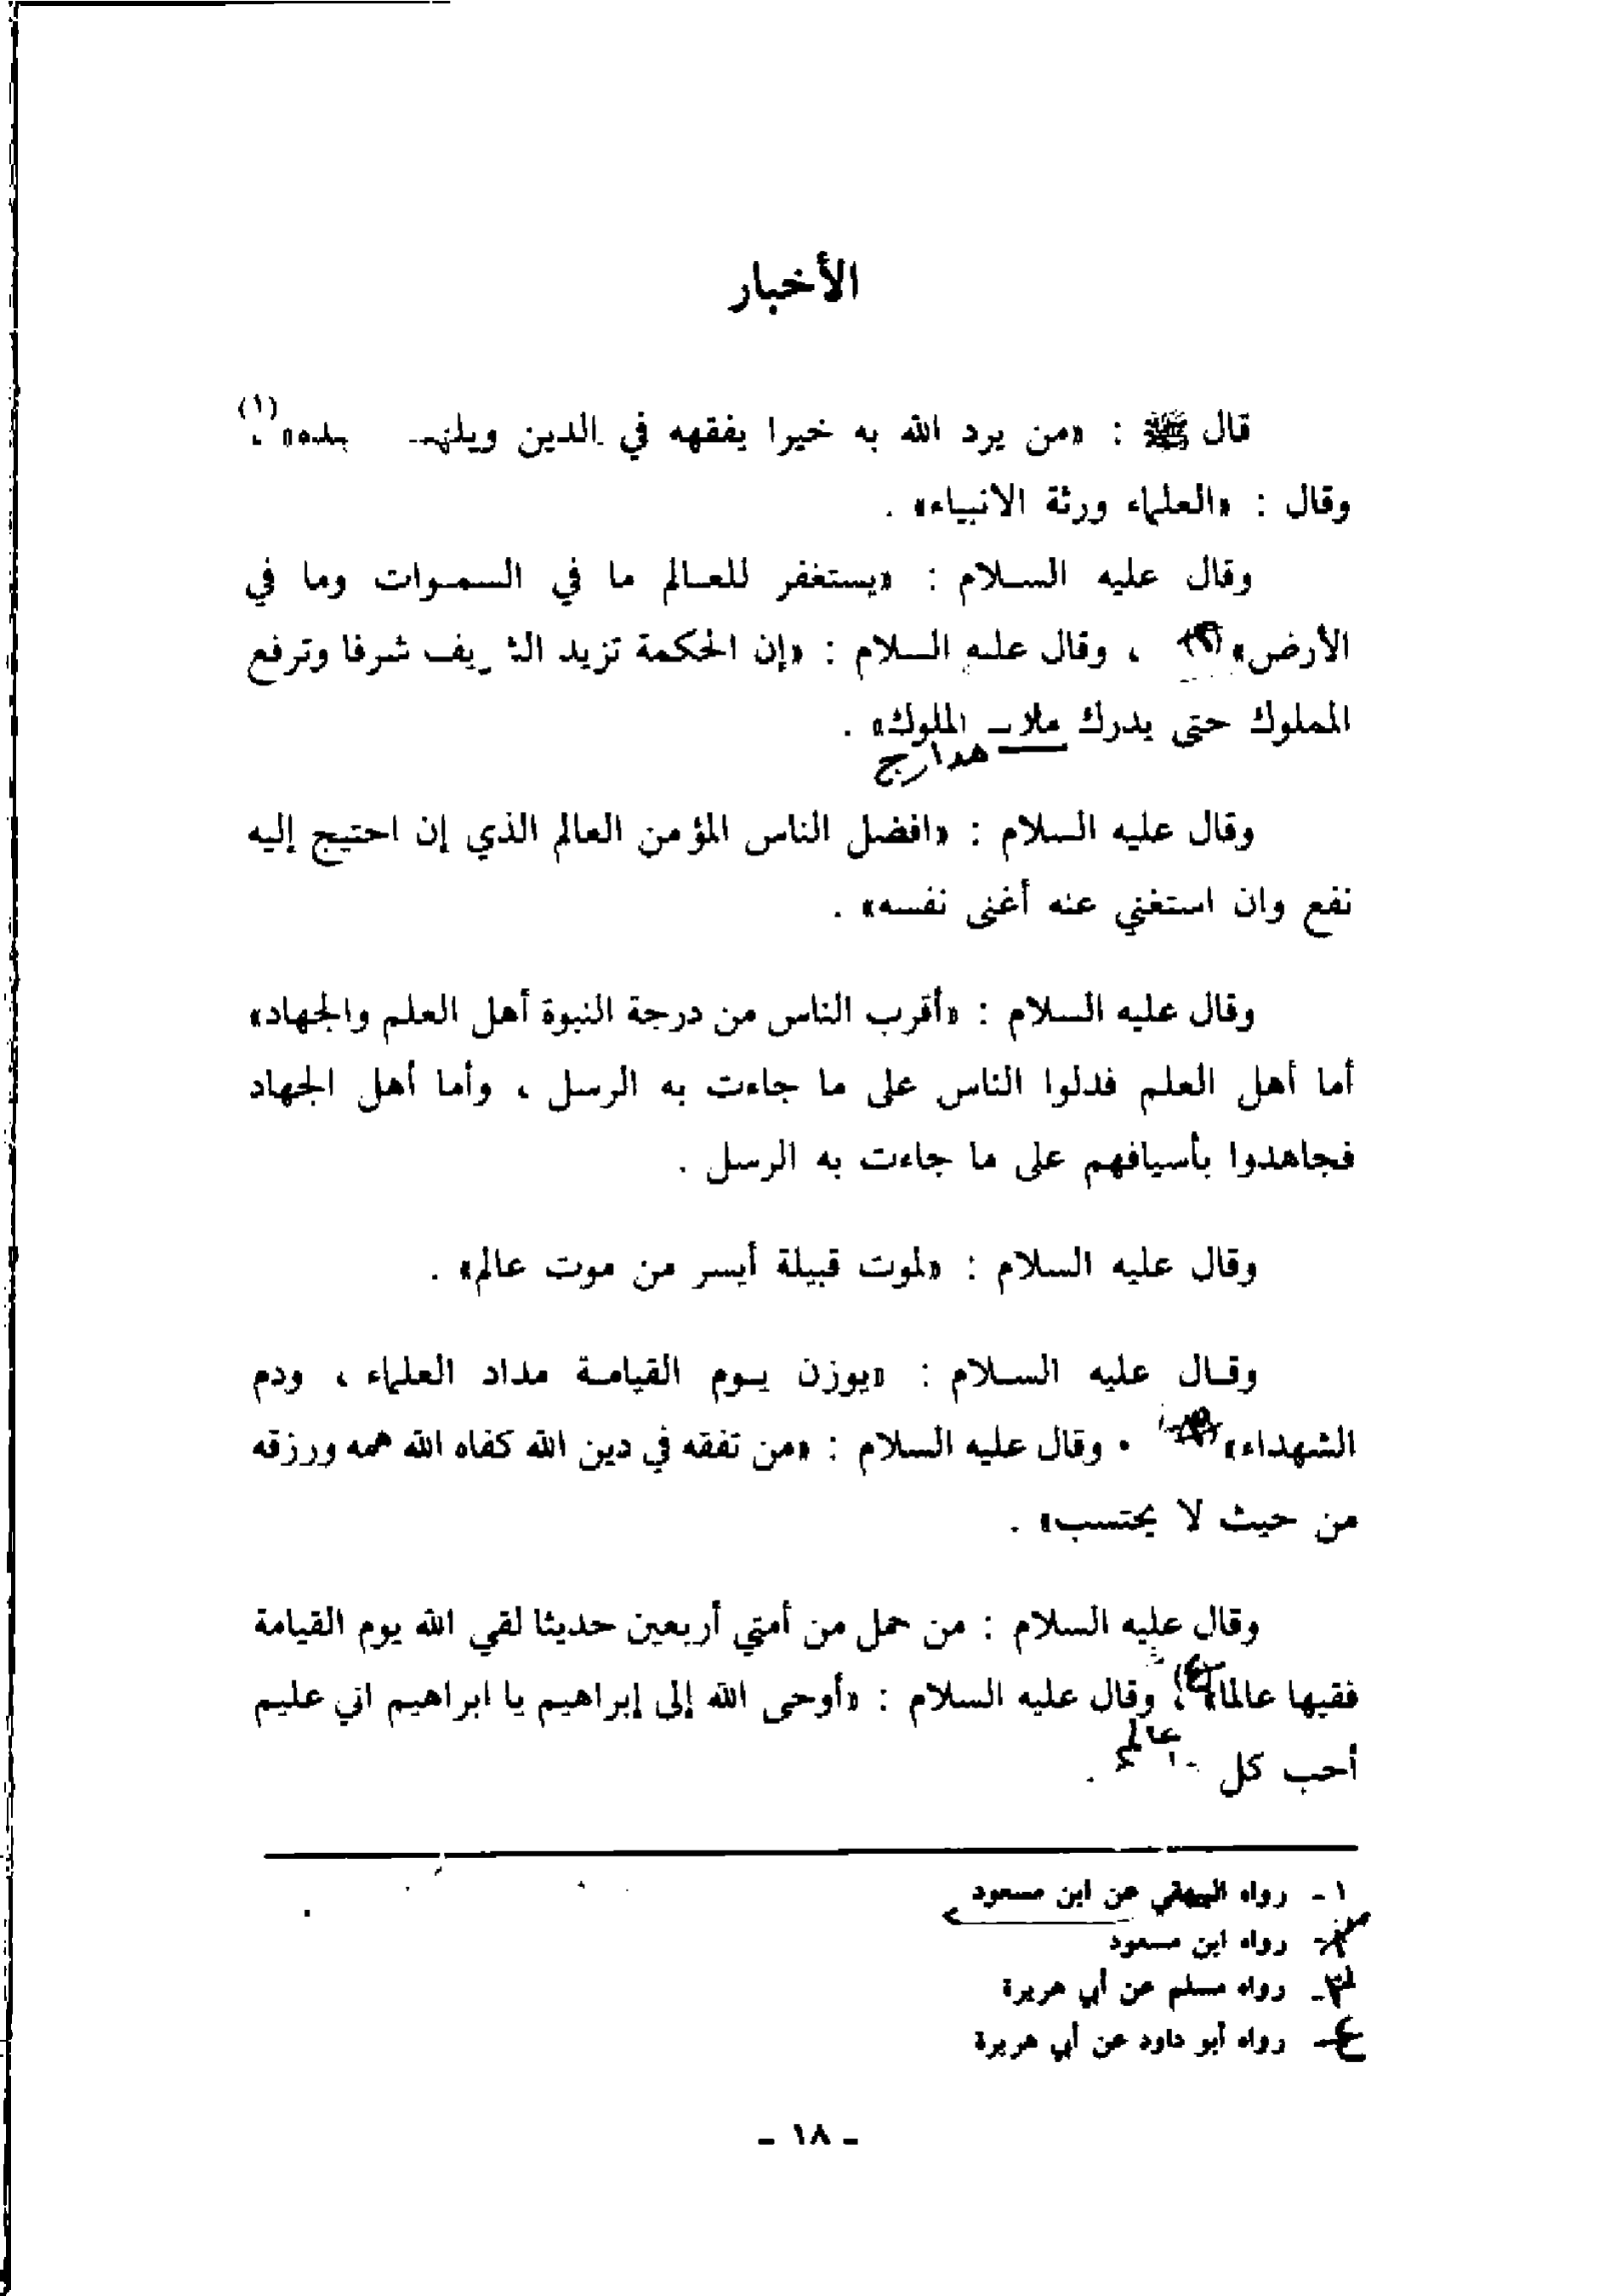 الأخبار
قال ﷺ : «من يرد الله به خيرا يفقهه في الدين (١)
وقال : «العلماء ورثة الانبياء» .
وقال عليه السلام : «يستغفر للعالم ما في السموات وما في
الأرض» ، وقال عليه السلام : «إن الحكمة تزيد الشريف شرفا وترفع
المملوك حتى يدرك الملوك» .
مدارج
وقال عليه السلام : «افضل الناس المؤمن العالم الذي إن احتيج إليه
نفع وان استغني عنه أغنى نفسه» .
وقال عليه السلام : «أقرب الناس من درجة النبوة أهل العلم والجهاد»
أما أهل العلم فدلوا الناس على ما جاءت به الرسل ، وأما أهل الجهاد
فجاهدوا بأسيافهم على ما جاءت به الرسل .
وقال عليه السلام : «لموت قبيلة أيسر من موت عالم» .
وقال عليه السلام : «يوزن يوم القيامة مداد العلماء ، ودم
الشهداء» . وقال عليه السلام : «من تفقه في دين الله كفاه الله همه ورزقه
من حيث لا يحتسب» .
وقال عليه السلام : من حمل من أمتي أربعين حديثا لقي الله يوم القيامة
فقيها عالما» (٤) ، وقال عليه السلام : «أوحى الله إلى إبراهيم يا ابراهيم اني عليم
أحب كل عالم .
١ - رواه البيهقي عن ابن مسعود
رواه ابن مسعود
٣ - رواه مسلم عن أبي هريرة
٤ - رواه أبو داود عن أبي هريرة
- ١٨ -